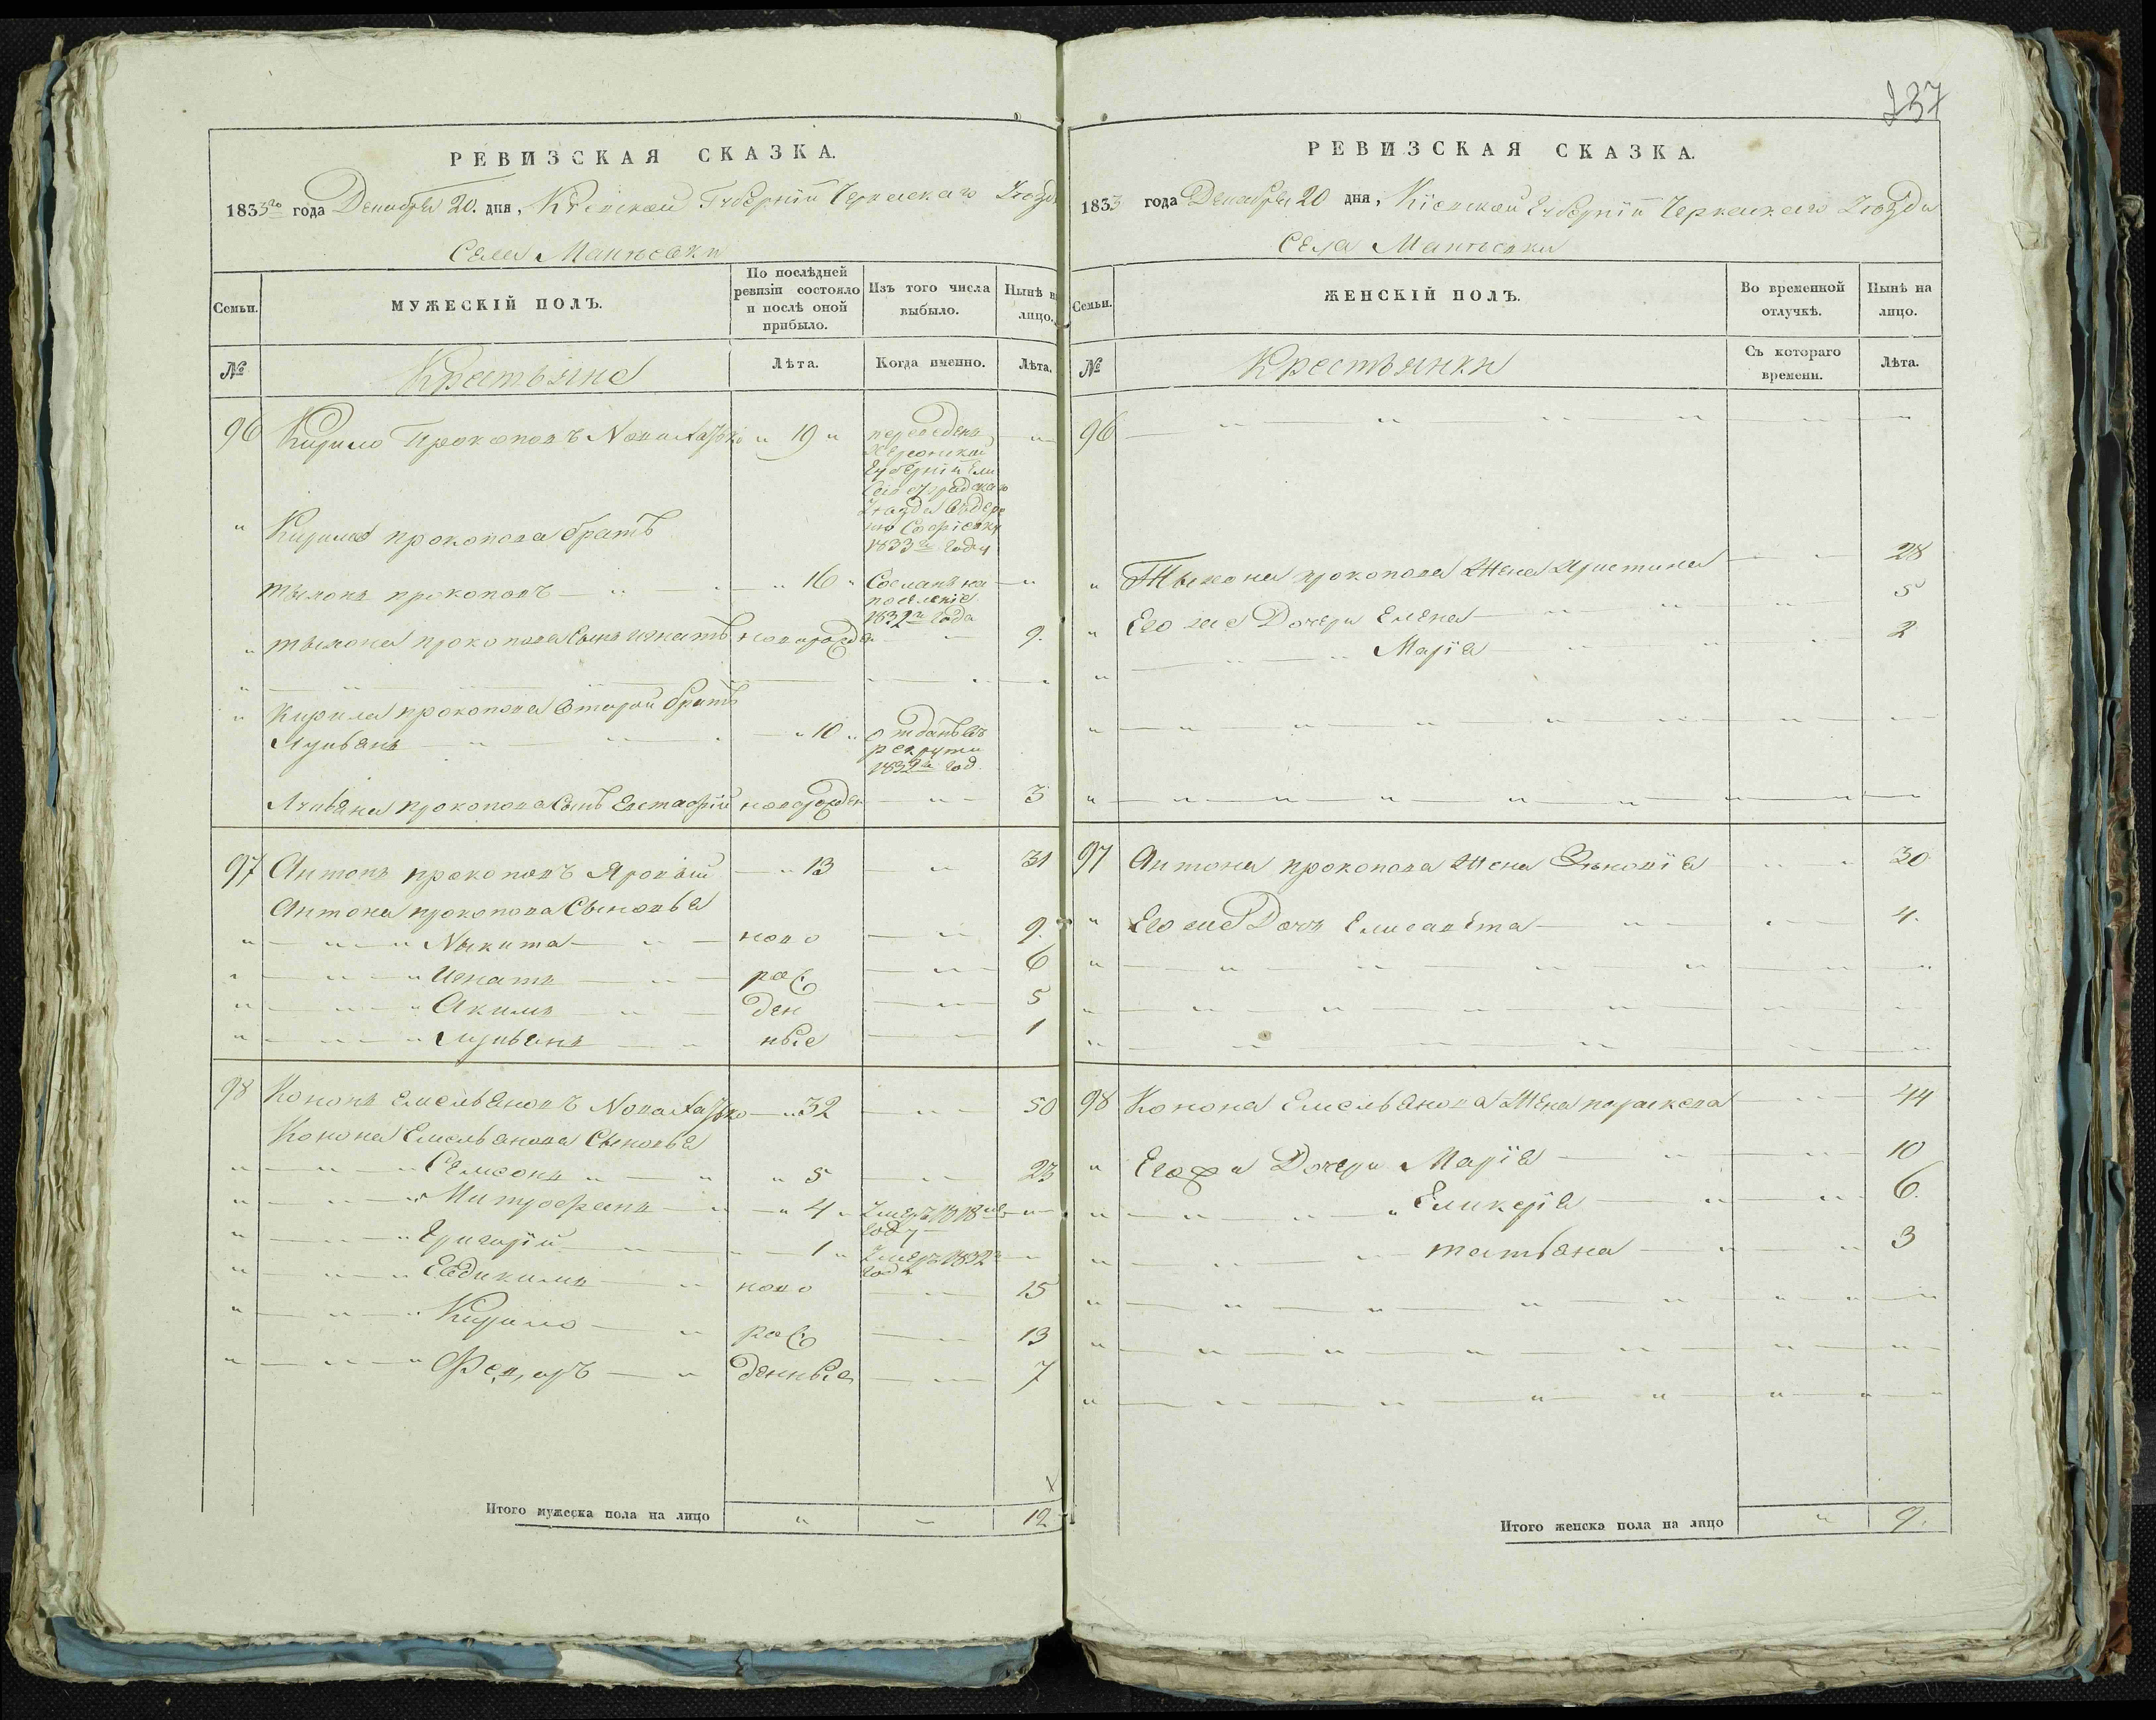 РЕВИЗСКАЯ СКАЗКА.
1833го года Декабря 20. дня, Кіевской Губерніи Черкаскаго Уѣзда
Села
Семьи.
МУЖЕСКІЙ ПОЛЪ.
По послѣдней ревизіи состояло и послѣ оной прибыло.
Изъ того числа выбыло.
Нынѣ на лицо.
№
Крестьяне
Лѣта.
Когда именно.
Лѣта.
96 Кирило Прокоповъ " 19 " переведенъ
Херсонской
Губерніи Ели
саветградскаго
Уѣзда въ дере
вню Софіевку
1833го году
" Кирила прокопова братъ
тымонъ прокоповъ " 16 " Сосланъ на
поселеніе
1832го года
" тымона прокопова Сынъ игнатъ новорожден 9.
" Кирила прокопова второй братъ
Лукьянъ " 10 " отданъ въ
рекруты
1832го год
Лукьяна прокопова Сынъ Евстафій новорожден 3
97 Антонъ прокоповъ Яровый 13 31
Антона прокопова Сыновья
" Никита ново 9.
" Игнатъ рож 6
" Акимъ ден 5
" Лукьянъ ные 1
98 Кононъ Емельяновъ 32 50
Конона Емельянова Сыновья
" Самсонъ " 5 23
" Митрофанъ 4 " Умеръ 1818го
году
" Григорій 1 " Умеръ 1832го
году
" Евдикимъ ново 15
" Кирило рож 13
" Федоръ денные 7
Итого мужеска пола на лицо 12
237
РЕВИЗСКАЯ СКАЗКА.
1833 года Декабря 20 дня, Кіевской Губерніи Черкаскаго Уѣзда
Села
Семьи.
ЖЕНСКІЙ ПОЛЪ.
Во временной отлучкѣ.
Нынѣ на лицо.
№
Крестьянки
Съ котораго времени.
Лѣта.
96
" Тымона прокопова Жена Христина 28
" Его же Дочери Елена 5
" Марія 2
97 Антона прокопова Жена Зѣновія 30
" Его же Дочь Елисавета 4.
98 Конона Емельянова Жена параскева 44
" Его же Дочери Марія 10
" Гликерія 6.
" татьяна 3
Итого женска пола на лицо 9.